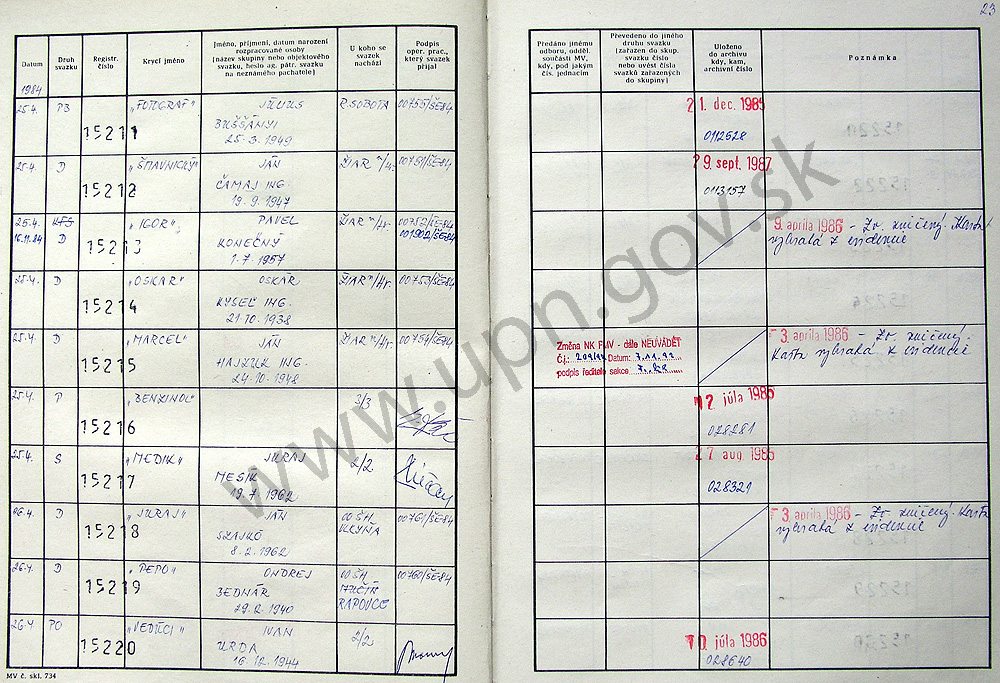 23
Datum
Druh svazku
Registr. číslo
Krycí jméno
Jméno, příjmení, datum narození rozpracované osoby (název skupiny nebo objektového svazku, heslo ag. pátr. svazku na neznámého pachatele)
U koho se svazek nachází
Podpis oper. prac., který svazek přijal
Předáno jinému odboru, odděl. součásti MV, kdy, pod jakým čís. jednacím
Převedeno do jiného druhu svazku (zařazen do skup. svazku číslo nebo uvést čísla svazků zařazených do skupiny)
Uloženo do archivu kdy, kam, archivní číslo
Poznámka
1984
25.4. PB 15211 "FOTOGRAF" JÚLIUS R. SOBOTA 00755/ŠE-84
BUŠŠÁNYI
25-3.1949
21. dec. 1985
0112528
25.4. D 15212 "ŠTIAVNICKÝ" JÁN ŽIAR n/Hr. 00751/ŠE-84
ČAMAJ ING.
19.9.1947
29. sept. 1987
0113157
25.4. KTS 15213 "IGOR" PAVEL ŽIAR n/Hr. 00752/ŠE-84
16.11.84 D KONEČNÝ 001902/ŠE-84
1.7.1957
9. apríla 1986 - Zv. zničený. Karta
vybratá z evidencie
25.4. D 15214 "OSKAR" OSKÁR ŽIAR n/Hr. 00753/ŠE-84
KYSEĽ ING.
21.10.1938
25.4. D 15215 "MARCEL" JÁN ŽIAR n/Hr. 00754/ŠE-84
ING.
24.10.1948
Změna NK FMV - dále NEUVÁDĚT
Č.j.: Datum: 7.11.
podpis ředitele sekce
3. apríla 1986 - Zv. zničený.
Karta vybratá z evidencie
25.4. P 15216 "BENZINOL" 3/3
12. júla 1985
028281
25.4. S 15217 "MEDIK" JURAJ 2/2
MESÍK
19.7.1962
27. aug. 1985
028321
26.4. D 15218 "JURAJ" JÁN OO ŠtB 00761/ŠE-84
SZAJKÓ
8.2.1962
3. apríla 1986 - Zv. zničený. Karta
vybratá z evidencie
26.4. D 15219 "PEPO" ONDREJ 00760/ŠE-84
BEDNÁR
29.2.1940 RAPOVCE
26.4. PO 15220 "VEDÚCI" IVAN 2/2
URDA
16.12.1944
10. júla 1986
028640
MV č. skl. 734
www.upn.gov.sk